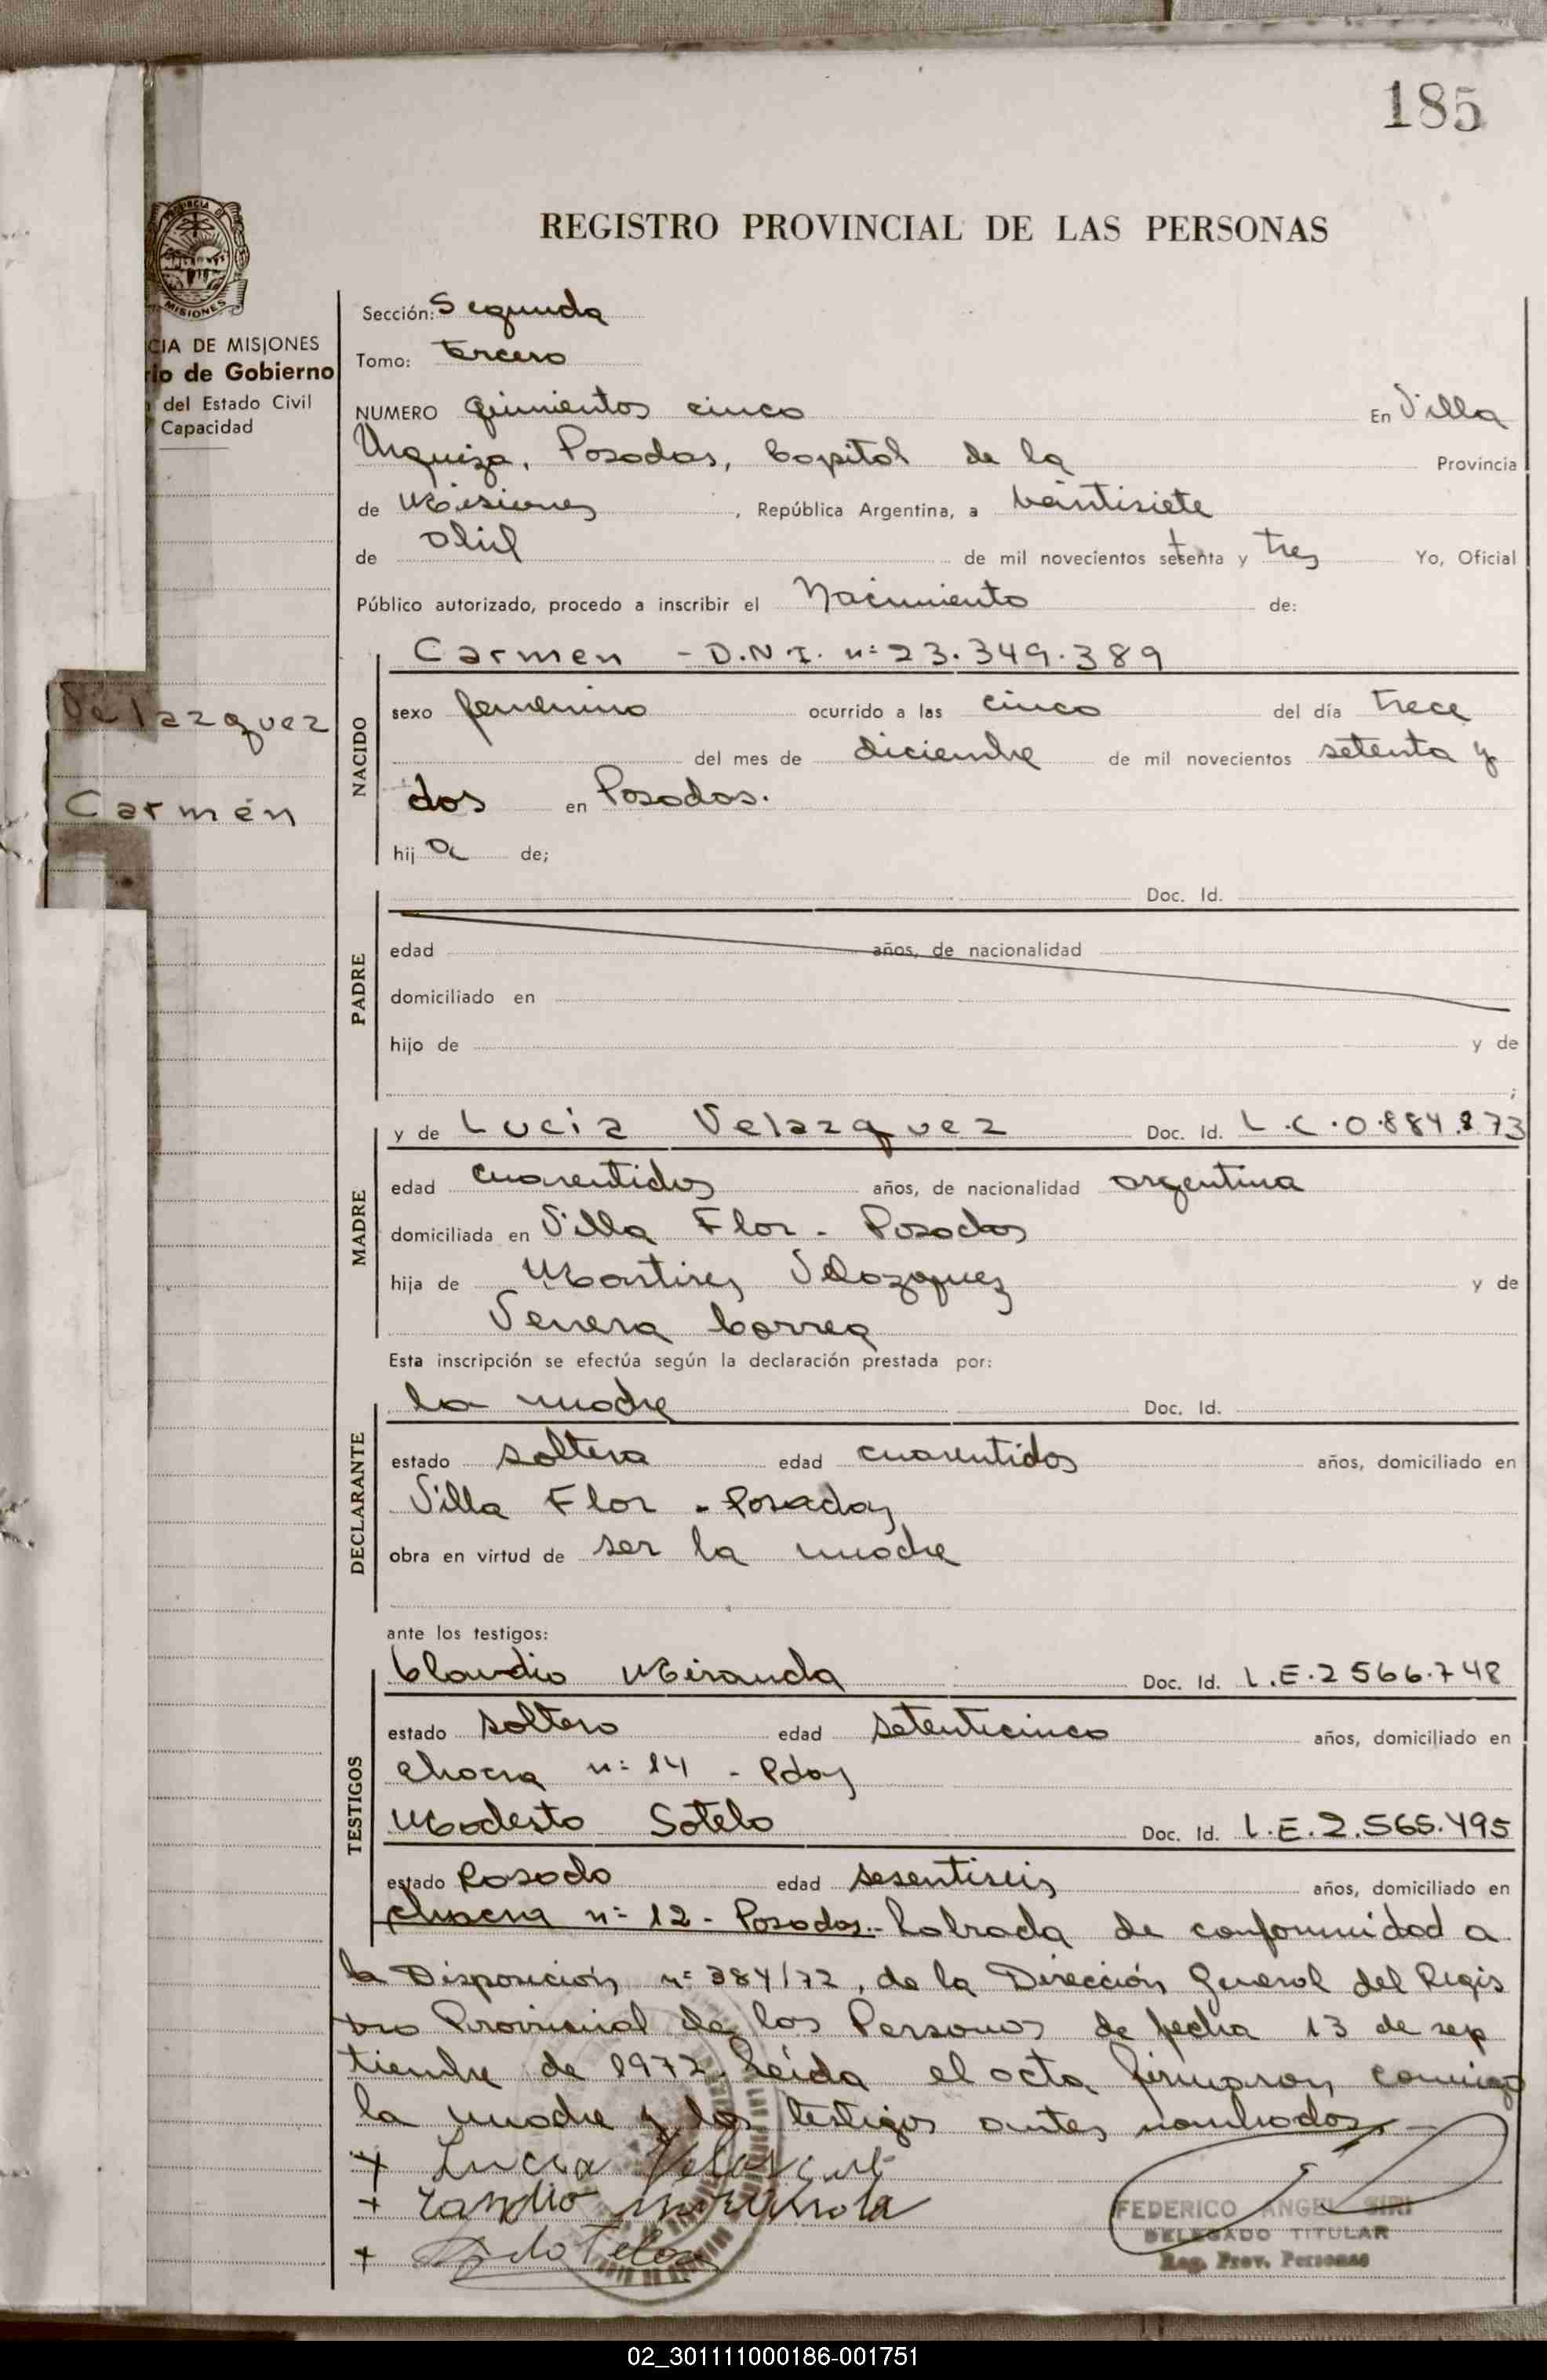 185
REGISTRO PROVINCIAL DE LAS PERSONAS
PROVINCIA D
MISIONES
CIA DE MISIONES
io de Gobierno
del Estado Civil
Capacidad
Sección: Segunda
Tomo: tercero
NUMERO quinientos cinco En Villa
Urquiza, Posadas, Capital de la Provincia
de Misiones, República Argentina, a veintisiete
de abril de mil novecientos setenta y tres Yo, Oficial
Público autorizado, procedo a inscribir el Nacimiento de:
Carmen - D.N.I. nº 23.349.389
Velazquez
Carmen
NACIDO
sexo femenino ocurrido a las cinco del día trece
del mes de diciembre de mil novecientos setenta y
dos en Posadas.
hij a de;
PADRE
Doc. Id.
edad años, de nacionalidad
domiciliado en
hijo de y de
;
MADRE
y de Lucia Velazquez Doc. Id. L.C.0.884.873
edad cuarentidos años, de nacionalidad argentina
domiciliada en Villa Flor - Posadas
hija de Martires Velazquez y de
Venera Correa
Esta inscripción se efectúa según la declaración prestada por:
DECLARANTE
la madre Doc. Id.
estado soltera edad cuarentidos años, domiciliado en
Villa Flor - Posadas
obra en virtud de ser la madre
ante los testigos:
TESTIGOS
Claudio Miranda Doc. Id. L.E.2566.748
estado soltero edad setenticinco años, domiciliado en
chacra nº 14 - Pdas
Modesto Sotelo Doc. Id. L.E.2.565.495
estado Casado edad sesentiseis años, domiciliado en
chacra nº 12 - Posadas.- Labrada de conformidad a
la Disposición nº 384/72, de la Dirección General del Regis
tro Provincial de las Personas de fecha 13 de sep
tiembre de 1972. Leída el acta firmaron conmigo
la madre y los testigos antes nombrados.-
+ Lucia
+
+
FEDERICO ANGEL SIRI
DELEGADO TITULAR
Reg. Prov. Personas
02_301111000186-001751